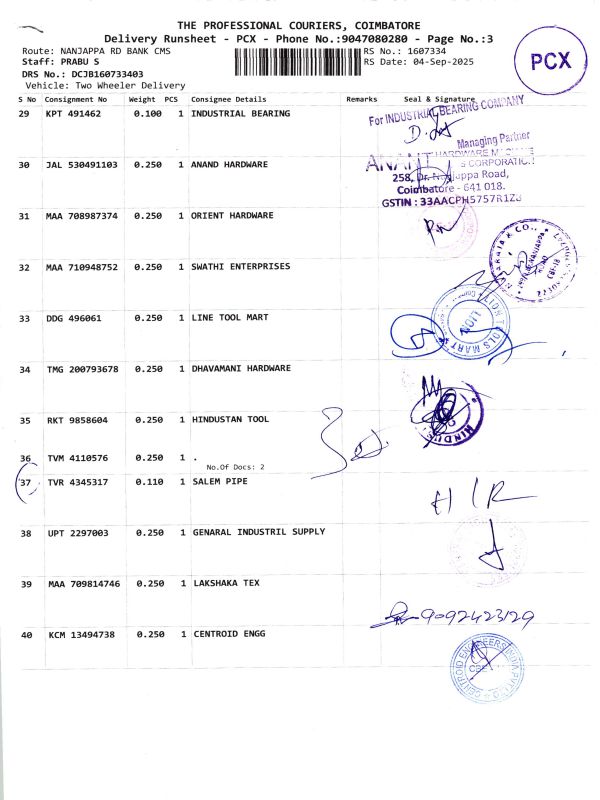 THE PROFESSIONAL COURIERS, COIMBATORE
Delivery Runsheet - PCX - Phone No.:9047080280 - Page No.:3
Route: NANJAPPA RD BANK CMS
RS No.: 1607334
Staff: PRABU S
RS Date: 04-Sep-2025
PCX
DRS No.: DCJB160733403
Vehicle: Two Wheeler Delivery
S No Consignment No Weight PCS Consignee Details Remarks Seal & Signature
29 KPT 491462 0.100 1 INDUSTRIAL BEARING
For INDUSTRIAL BEARING COMPANY
Managing Partner
30 JAL 530491103 0.250 1 ANAND HARDWARE
HARDWARE
CORPORATION
258, Dr. Nanjappa Road,
Coimbatore - 641 018.
GSTIN : 33AACPH5757R1Z
31 MAA 708987374 0.250 1 ORIENT HARDWARE
32 MAA 710948752 0.250 1 SWATHI ENTERPRISES
33 DDG 496061 0.250 1 LINE TOOL MART
34 TMG 200793678 0.250 1 DHAVAMANI HARDWARE
35 RKT 9858604 0.250 1 HINDUSTAN TOOL
36 TVM 4110576 0.250 1 .
No.Of Docs: 2
37 TVR 4345317 0.110 1 SALEM PIPE
38 UPT 2297003 0.250 1 GENARAL INDUSTRIL SUPPLY
39 MAA 709814746 0.250 1 LAKSHAKA TEX
9092423129
40 KCM 13494738 0.250 1 CENTROID ENGG